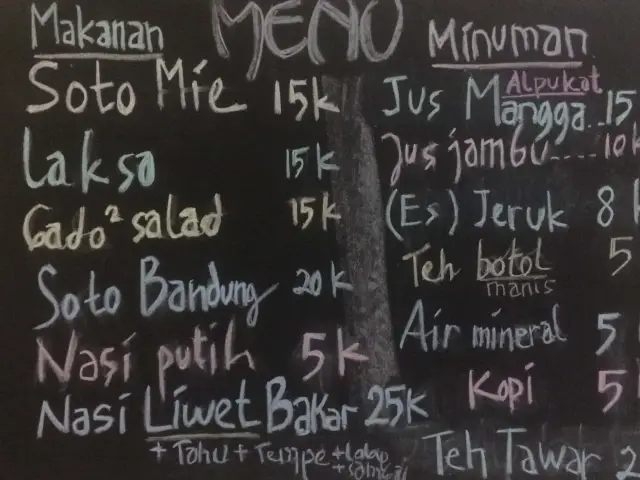 MENU
Makanan
Soto Mie 15k
Laksa 15k
Gado² salad 15k
Soto Bandung 20k
Nasi putih 5k
Nasi Liwet Bakar 25k
+ Tahu + Tempe + Lalap
+ Sambal
Minuman
Alpukat
Jus Mangga..15
Jus jambu....10k
(Es) Jeruk 8k
Teh botol 5
manis
Air mineral 5
Kopi 5k
Teh Tawar 2